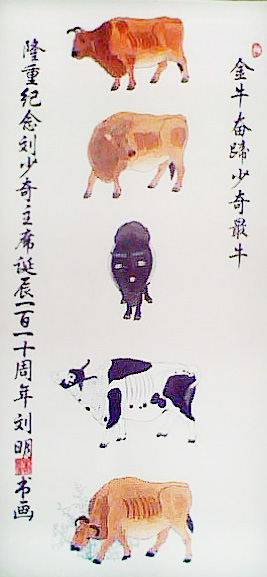 金牛奋蹄少奇最牛
隆重纪念刘少奇主席诞辰一百一十周年刘明书画